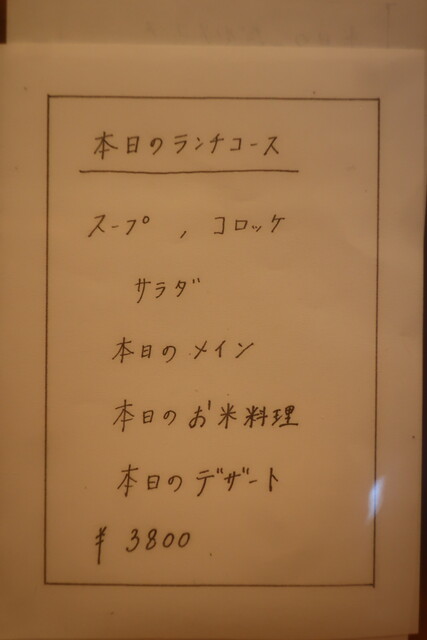 本日のランチコース
スープ , コロッケ
サラダ
本日のメイン
本日のお米料理
本日のデザート
¥ 3800